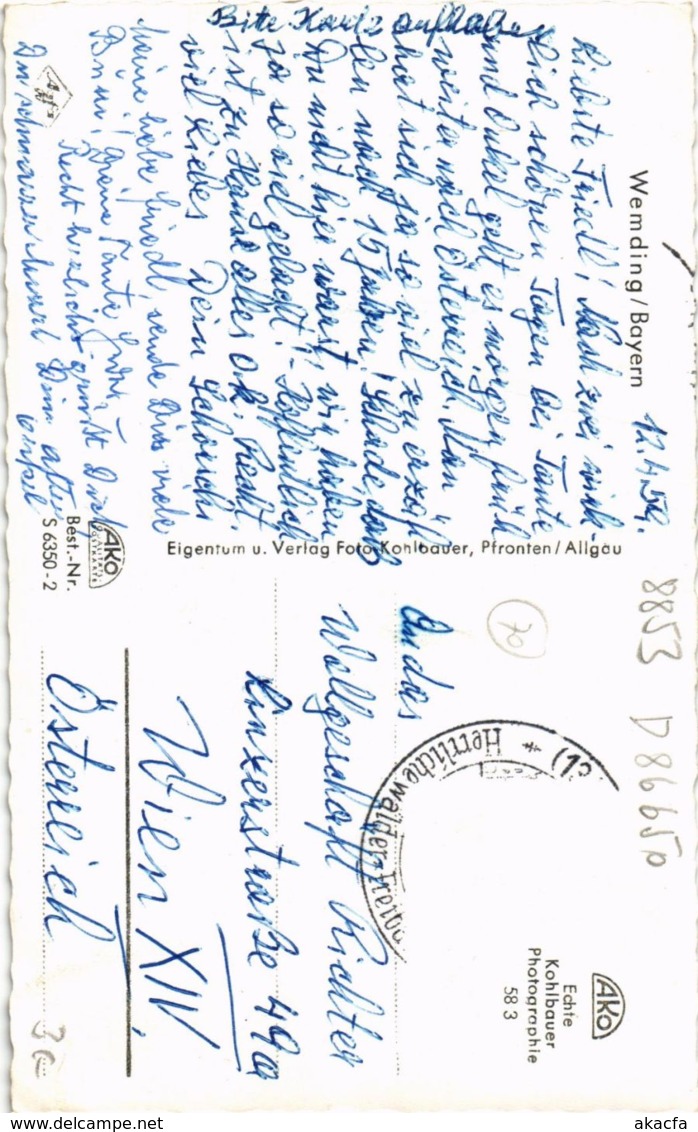 Bitte Karte aufheben
Wemding/Bayern
12.4.59.
Liebste Friedl! Nach zwei wirk-
lich schönen Tagen bei Tante
und Onkel geht es morgen früh
weiter nach Österreich. Man
hat sich ja so viel zu erzäh-
len nach 15 Jahren! Schade, dass
Du nicht hier warst, wir haben
ja so viel gelacht! - Hoffentlich
ist zu Hause alles o.k. Recht
viel Liebes Dein
Meine liebe Friedl, sende Dir viele
Deine Tante
Recht herzlich grüßt Dich
Dein alter
Onkel
Agfa
AKO
QUALITÄTS-
POSTKARTE
Best.-Nr.
S 6350-2
Eigentum u. Verlag Foto-Kohlbauer, Pfronten/Allgäu
8853
D 86650
70
(13
* Herrliche Wälder
An das
Wollgeschäft Richter
Linzerstraße 49a
Wien XIV,
Österreich
AKO
Echte
Kohlbauer
Photographie
58 3
akacfa
delcampe.net